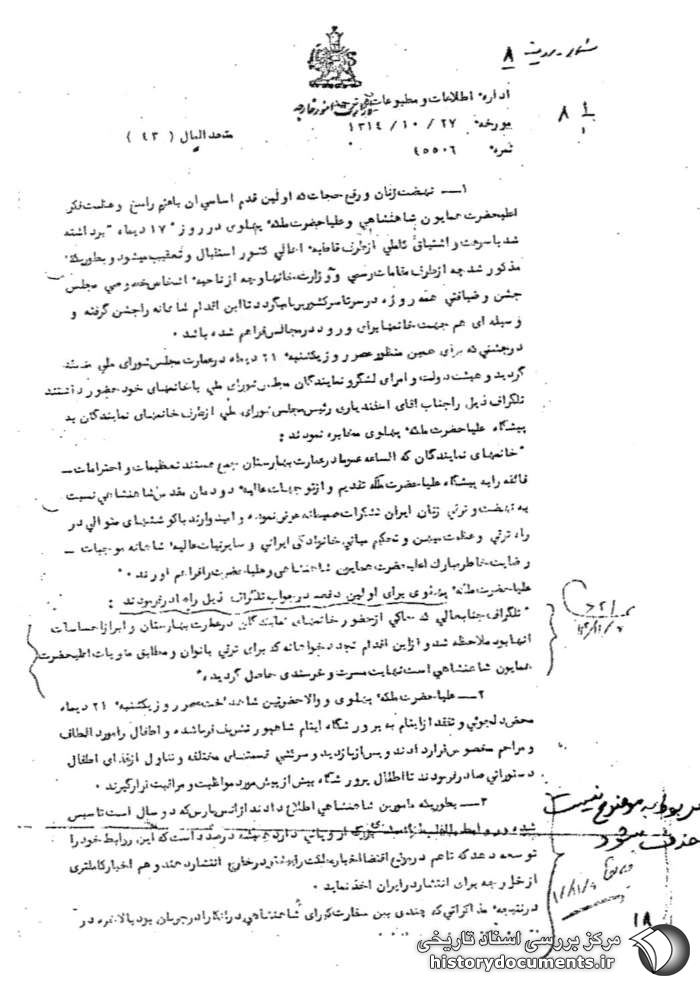 شماره ردیف ۸
اداره اطلاعات و مطبوعات وزارت امور خارجه
مورخه ۲۷ / ۱۰ / ۱۳۱۴
نمره ۴۵۵۰۶
متحدالمال ( ۴۳ )
۸ ۱/۱
۱ــ نهضت زنان و رفع حجاب که اولین قدم اساسی آن باهتم راسخ و عظمت فکر
اعلیحضرت همایون شاهنشاهی و علیاحضرت ملکه پهلوی در روز ۱۷ دیماه برداشته
شد با سرعت و اشتیاق کاملی از طرف قاطبه اهالی کشور استقبال و تعقیب میشود و بطوریکه
مذکور شد چه از طرف مقامات رسمی و وزارتخانها و چه از ناحیه اشخاص خصوصی مجلس
جشن و ضیافتی همه روزه در سرتاسر کشور برپا میگردد تا این اقدام شاهانه را جشن گرفته و
وسیله ای هم جهت خانمها برای ورود در مجالس فراهم شده باشد .
در جشنی که برای همین منظور عصر روز یکشنبه ۲۱ دیماه در عمارت مجلس شورای ملی منعقد
گردید و هیئت دولت و امرای لشگر و نمایندگان مجلس شورای ملی با خانمهای خود حضور داشتند
تلگراف ذیل را جناب اقای اسفندیاری رئیس مجلس شورای ملی از طرف خانمهای نمایندگان به
پیشگاه علیاحضرت ملکه پهلوی مخابره نمودند :
" خانمهای نمایندگان که الساعه عموما در عمارت بهارستان جمع هستند تعظیمات و احترامات ــ
فائقه را به پیشگاه علیاحضرت ملکه تقدیم و از توجهات عالیه دودمان مقدس شاهنشاهی نسبت
به نهضت و ترقی زنان ایران تشکرات صمیمانه عرض نموده و امیدوارند با کوششهای متوالی در
راه ترقی و عظمت میهن و تحکیم مبانی خانوادگی ایرانی و سایر نیات عالیه شاهانه موجبات ــ
رضایت خاطر مبارک اعلیحضرت همایون شاهنشاهی و علیاحضرت را فراهم آورند . "
علیاحضرت ملکه پهلوی برای اولین دفعه در جواب تلگراف ذیل را صادر فرمودند :
" تلگراف جنابعالی که حاکی از حضور خانمهای نمایندگان در عمارت بهارستان و ابراز احساسات
انها بود ملاحظه شد و از این اقدام تجددخواهانه که برای ترقی بانوان و مطابق منویات اعلیحضرت
همایون شاهنشاهی است نهایت مسرت و خرسندی حاصل گردید "
۲ــ علیاحضرت ملکه پهلوی و والاحضرتین شاهدخت عصر روز یکشنبه ۲۱ دیماه
محض دلجوئی و تفقد از ایتام به پرورشگاه ایتام شاهپور تشریف فرما شده و اطفال را مورد الطاف
و مراحم مخصوص قرار دادند و پس از بازدید و سرکشی قسمتهای مختلفه و تناول از غذای اطفال
دستوراتی صادر فرمودند تا اطفال پرورشگاه بیش از پیش مورد مواظبت و مراقبت قرار گیرند .
۳ــ بطوریکه مامورین شاهنشاهی اطلاع دادند اژانس پارس که دو سال است تاسیس
شده و روابط با اروپائی دارد همیشه درصدد است که این روابط خود را
توسعه دهد که تا هم در موقع اقتضا اخبار مملکت را بیشتر در خارج انتشار دهد و هم اخبار کاملتری
از خارجه برای انتشار در ایران اخذ نماید .
در نتیجه مذاکراتی که چندی بین سفارت کبرای شاهنشاهی در انکارا در جریان بود بالاخره در
مربوط به موضوع نیست
حذف میشود
۱۸
مرکز بررسی اسناد تاریخی
historydocuments.ir